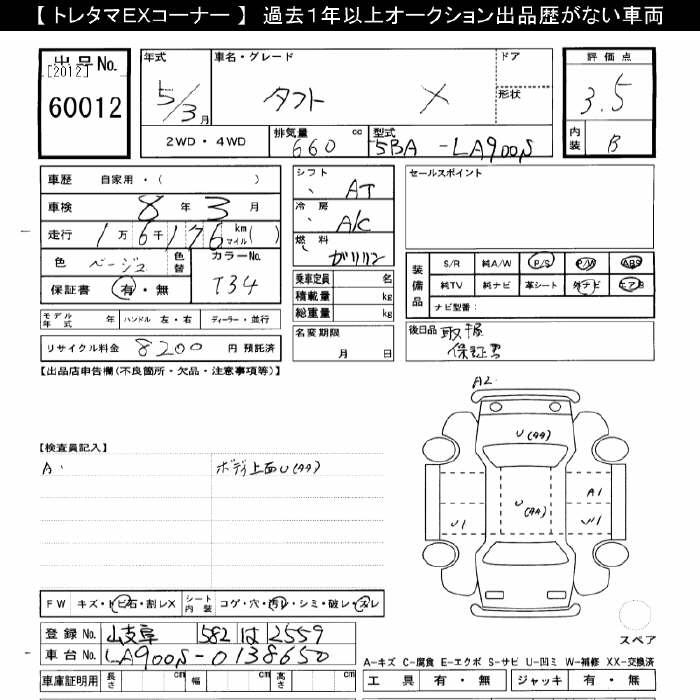 【 トレタマEXコーナー 】 過去1年以上オークション出品歴がない車両
出品No.
[2012]
60012
年式
5/3月
車名・グレード
タフト X
ドア
形状
評価点
3.5
内装
B
2WD・4WD
排気量 660 cc
型式 5BA -LA900S
車歴 自家用・( )
車検 8年 3月
走行 1万 6千 176 km マイル( )
色 ベージュ 色替
カラーNo.
T34
保証書 有・無
モデル年式 年 ハンドル 左・右 ディーラー・並行
リサイクル料金 8200 円 預託済
シフト AT
冷房 A/C
燃料 ガソリン
乗車定員 名
積載量 kg
総重量 kg
名変期限
月 日
セールスポイント
装備品
S/R 純A/W P/S P/W ABS
純TV 純ナビ 革シート 外ナビ エアB
ナビ型番:
後日品 取扱
保証書
【出品店申告欄(不良箇所・欠品・注意事項等)】
【検査員記入】
A・
ボディ上面U(タタ)
A2
U(タタ)
U(タタ)
A1
U1
W1
スペア
FW キズ・トビ石・割レX
シート内装 コゲ・穴・汚レ・シミ・破レ・スレ
登録No. 岐阜 582 は 2559
車台No. LA900S-0138650
車庫証明用 長さ cm 幅 cm 高さ cm
A-キズ C-腐食 E-エクボ S-サビ U-凹ミ W-補修 XX-交換済
工具 有・無 ジャッキ 有・無